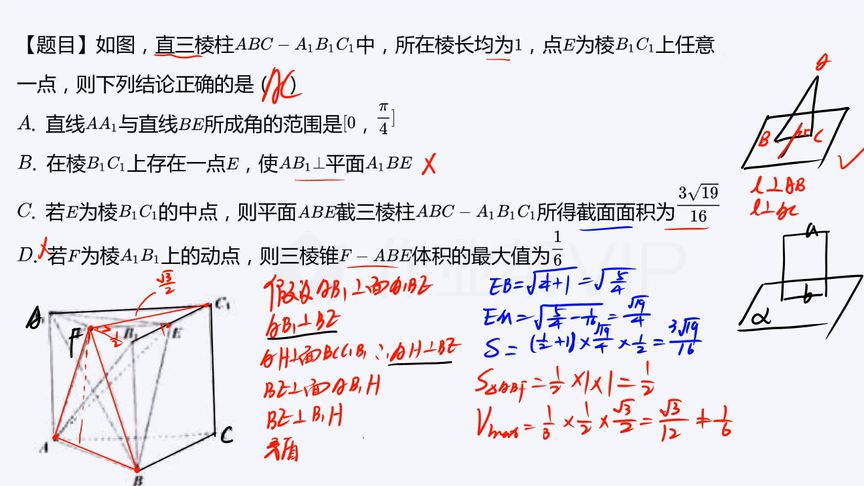 【题目】如图，直三棱柱ABC－A₁B₁C₁中，所在棱长均为1，点E为棱B₁C₁上任意
一点，则下列结论正确的是（AC）
A. 直线AA₁与直线BE所成角的范围是[0，π/4]
B. 在棱B₁C₁上存在一点E，使AB₁⊥平面A₁BE ×
C. 若E为棱B₁C₁的中点，则平面ABE截三棱柱ABC－A₁B₁C₁所得截面面积为3√19/16
D. 若F为棱A₁B₁上的动点，则三棱锥F－ABE体积的最大值为1/6
B C
l⊥AB
l⊥AC
a
b
α
√3/2
C₁
F
B₁
E
1/2
A
B
C
假设AB₁⊥面A₁BE
AB₁⊥BE
AH⊥面BCC₁B₁ ∴AH⊥BE
BE⊥面AB₁H
BE⊥B₁H
矛盾
EB=√(1/4+1)=√(5/4)
EM=√(5/4-1/16)=√19/4
S=(1/2+1)×√19/4×1/2=3√19/16
S△ABF=1/2×1×1=1/2
Vmax=1/3×1/2×√3/2=√3/12≠1/6